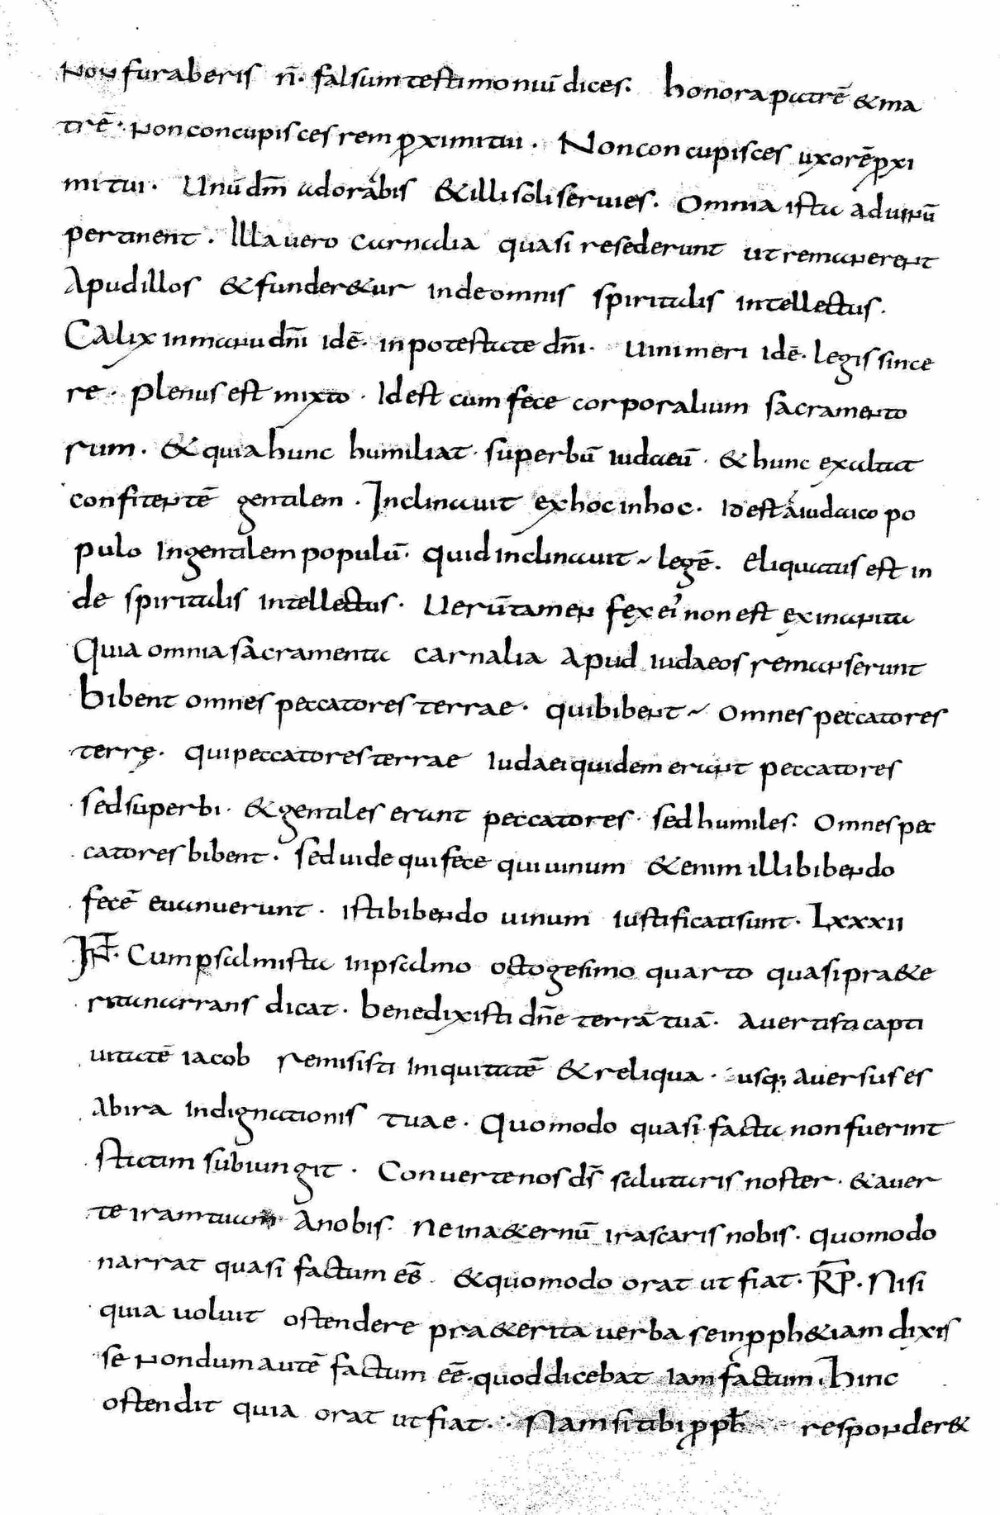 Non furaberis n̄· falsum testimoniū dices· honora patrē & ma
trē· Non concupisces rem p̱ximi tui· Non concupisces uxorē p̱xi
mi tui· Unū dm̄ adorabis & illi soli seruies· Omnia ista ad unū
pertinent· Illa uero carnalia quasi resederunt ut remanerent
Apud illos & funder&ur inde omnis spiritalis intellectus·
Calix in manu dn̄i idē· in potestate dn̄i· Uini meri idē· legis since
re· Plenus est mixto· Id est cum fece corporalium sacramento
rum· & quia hunc humiliat· superbū iudaeū· & hunc exaltat
confitentē gentalem· Inclinauit ex hoc in hoc· Id est a iudaico po
pulo In gentalem populū· quid inclinauit~ legē· Eliquatus est in
de spiritalis intellectus· Uerūtamen fex ei' non est exinanita
Quia omnia sacramenta carnalia apud iudaeos remanserunt
bibent omnes peccatores terrae· qui bibent~ Omnes peccatores
terrę· qui peccatores terrae Iudaei quidem erant peccatores
sed superbi· & gentales erunt peccatores· sed humiles· Omnes pec
catores bibent· sed uide qui fece qui uinum & enim illi bibendo
fecē euanuerunt· isti bibendo uinum iustificati sunt· Lxxxii
IN̄T· Cum psalmista in psalmo octogesimo quarto quasi pra&e
rita narrans dicat· benedixisti dn̄e terrā tuā· auertisti capti
uitatē iacob remisisti iniquitatē & reliqua· usq; auersus es
Ab ira indignationis tuae· Quomodo quasi facta non fuerint
statim subiungit· Conuerte nos ds̄ salutaris noster· & auer
te iram tuam a nobis· Ne in a&ernū irascaris nobis· quomodo
narrat quasi factum eē· & quomodo orat ut fiat· RP̄· Nisi
quia uoluit ostendere pra&erita uerba se inp̱ph&iam dixis
sē nondum autē factum eē· quod dicebat iam factum· hinc
ostendit quia orat ut fiat· Nam si tibi p̱ph̄ responder&